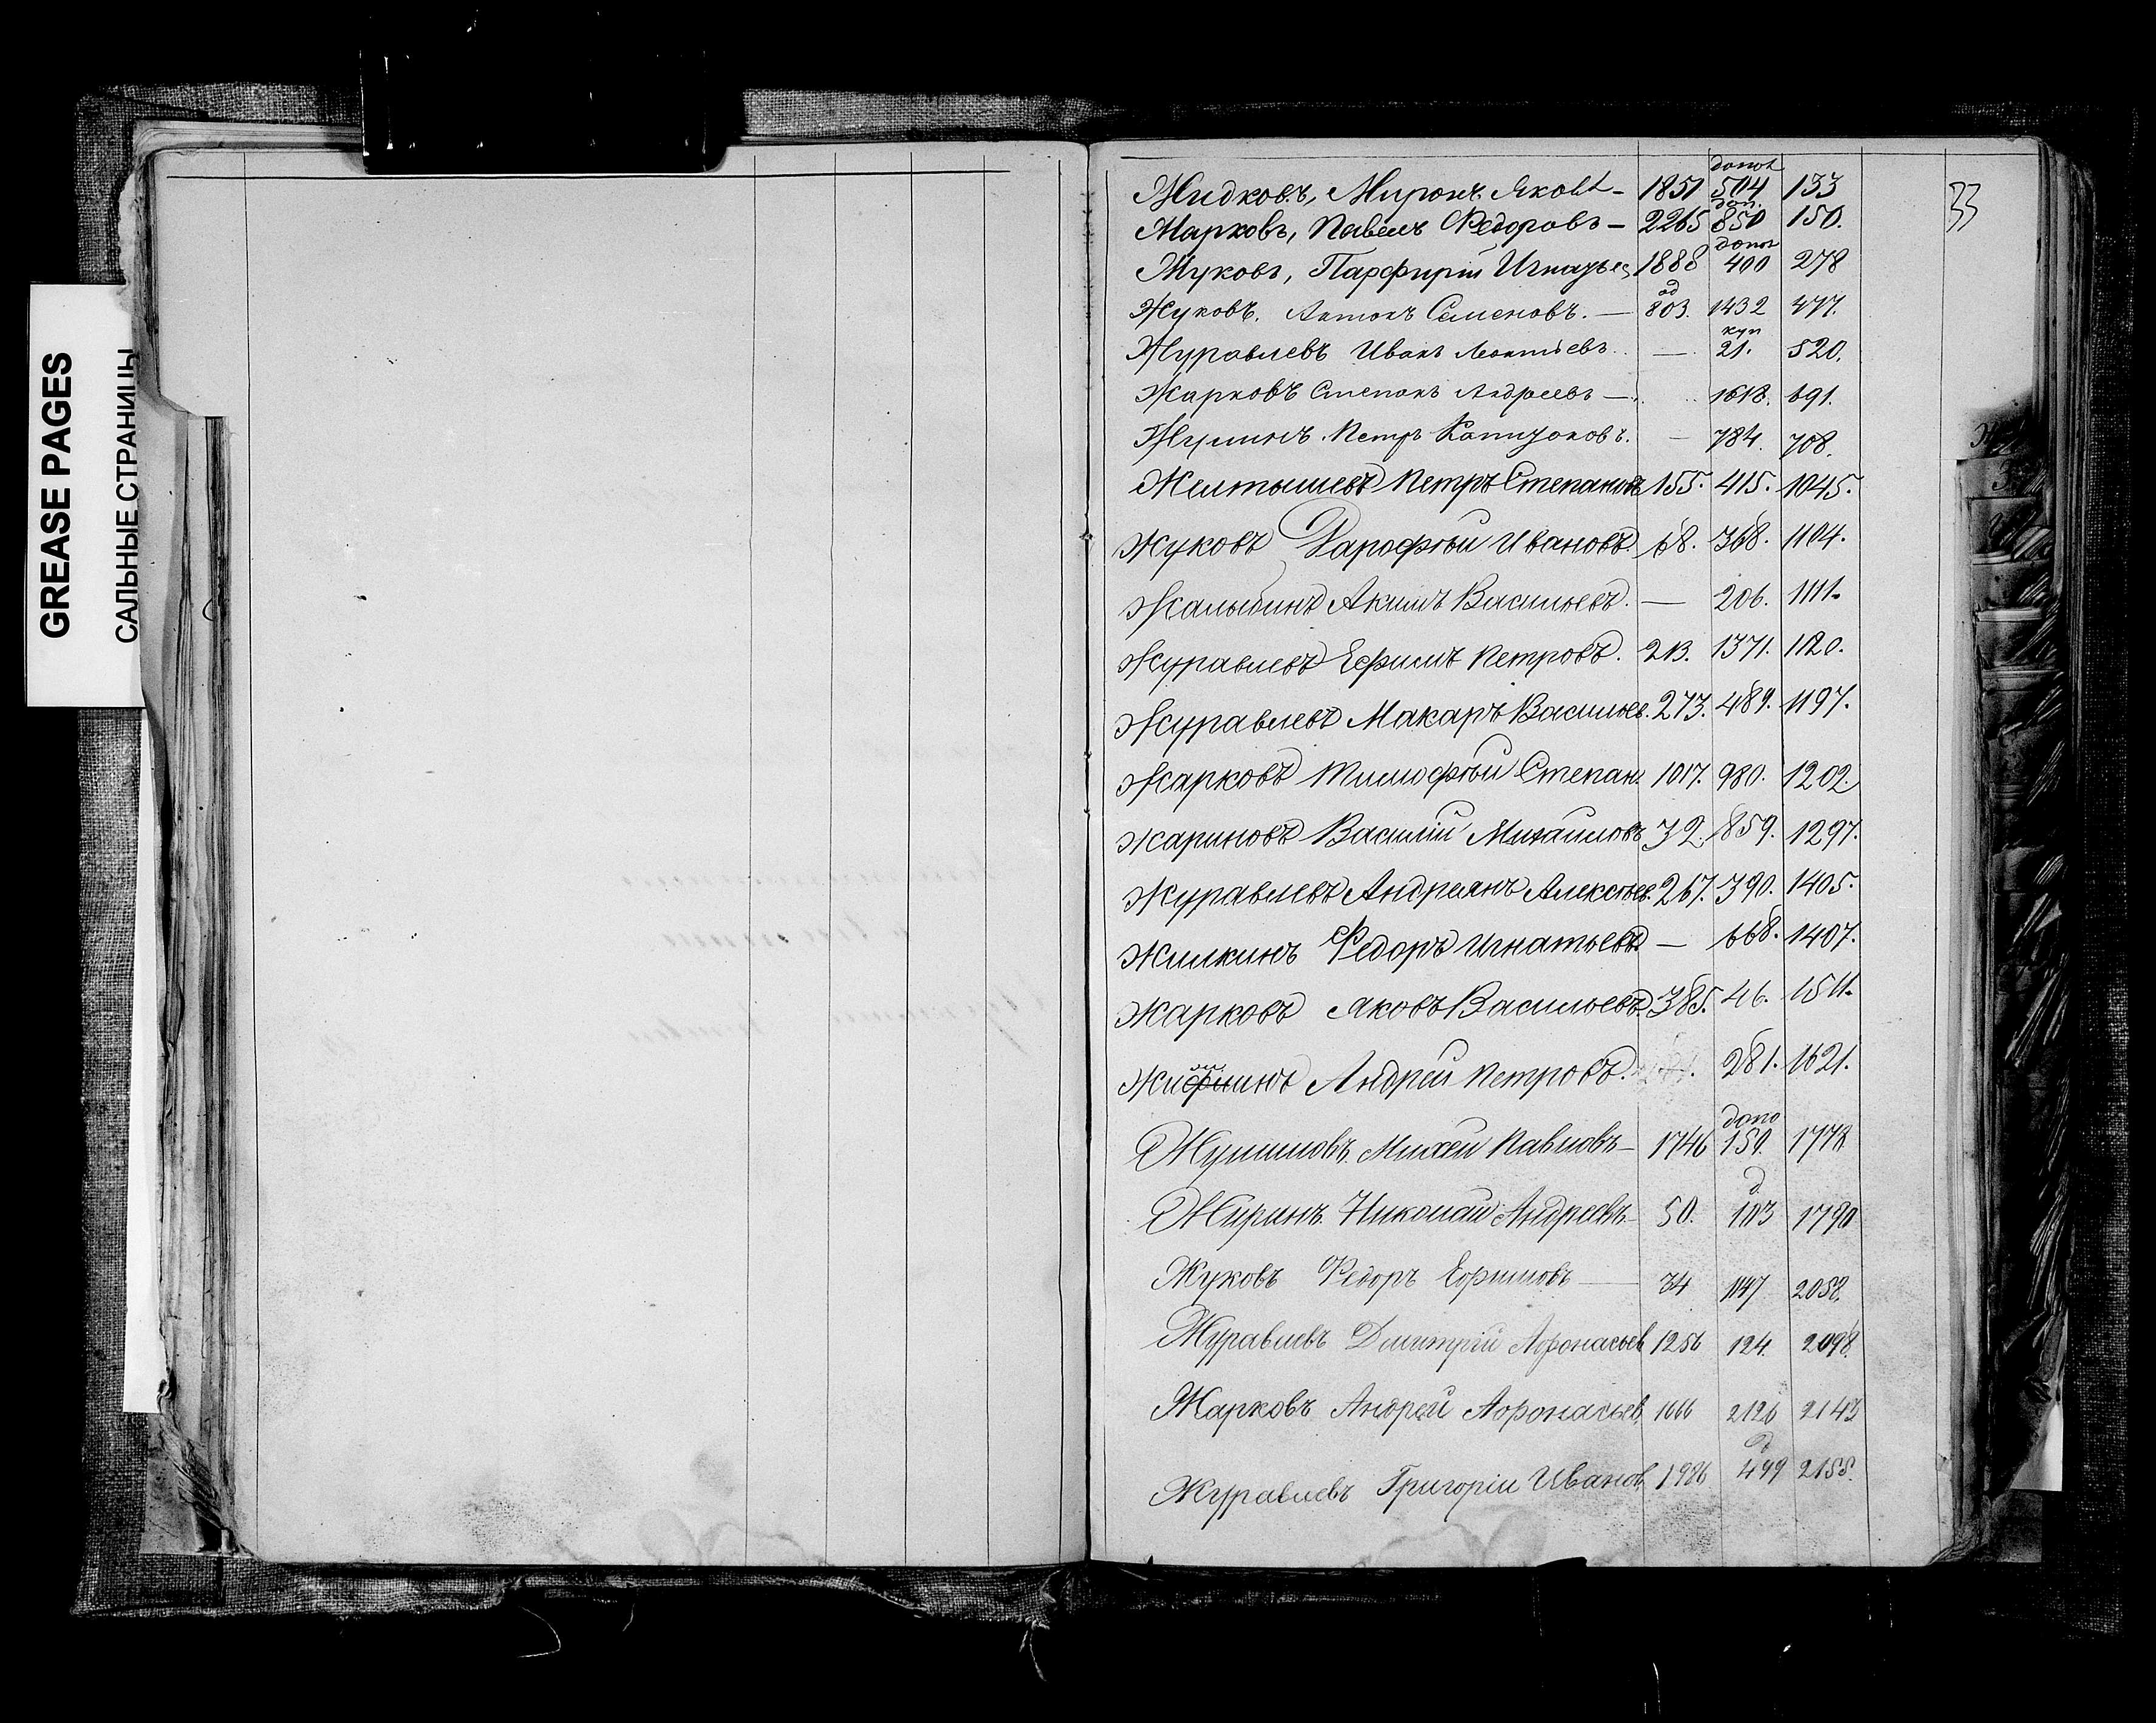 GREASE PAGES
САЛЬНЫЕ СТРАНИЦЫ
33
Жидковъ, Миронъ Яковл - 1851 допол 504 133
Жарковъ, Павелъ Федоровъ - 2265 доп. 850 150.
Жуковъ, Парфирій Игнатьев 1888 допол 400 278
Жуковъ. Антонъ Семеновъ. — 803. 1432 477.
Журавлевъ Иванъ Леонтьевъ. — куп 21. 520.
Жарковъ Степанъ Андреевъ — 1618. 691.
Петръ — 784. 708.
Желтышевъ Петръ Степановъ 155. 415. 1045.
Жуковъ Дарофѣй Ивановъ. 68. 368. 1104.
Жалыбинъ Акимъ Васильевъ. — 206. 1111.
Журавлевъ Ефимъ Петровъ. 213. 1371. 1120.
Журавлевъ Макаръ Васильев. 273. 489. 1197.
Жарковъ Тимофѣй Степан. 1017. 980. 1202.
Жариновъ Василій Михайловъ 32. 859. 1297.
Журавлевъ Андреянъ Алексѣев. 267. 390. 1405.
Жилкинъ Федоръ Игнатьевъ — 668. 1407.
Жарковъ Яковъ Васильевъ 385. 46. 1511.
Андрей Петровъ. 281. 1621.
Михей Павловъ - 1746 допо 150. 1778
Жиринъ Николай Андреевъ - 50. д 103 1790
Жуковъ Федоръ Ефимовъ — 34 1147 2058.
Журавлевъ Дмитрій Афонасьев 1256 124. 2098.
Жарковъ Андрей Афонасьев 1666 2126 2143
Журавлевъ Григорій Иванов 1986 д 499 2155.